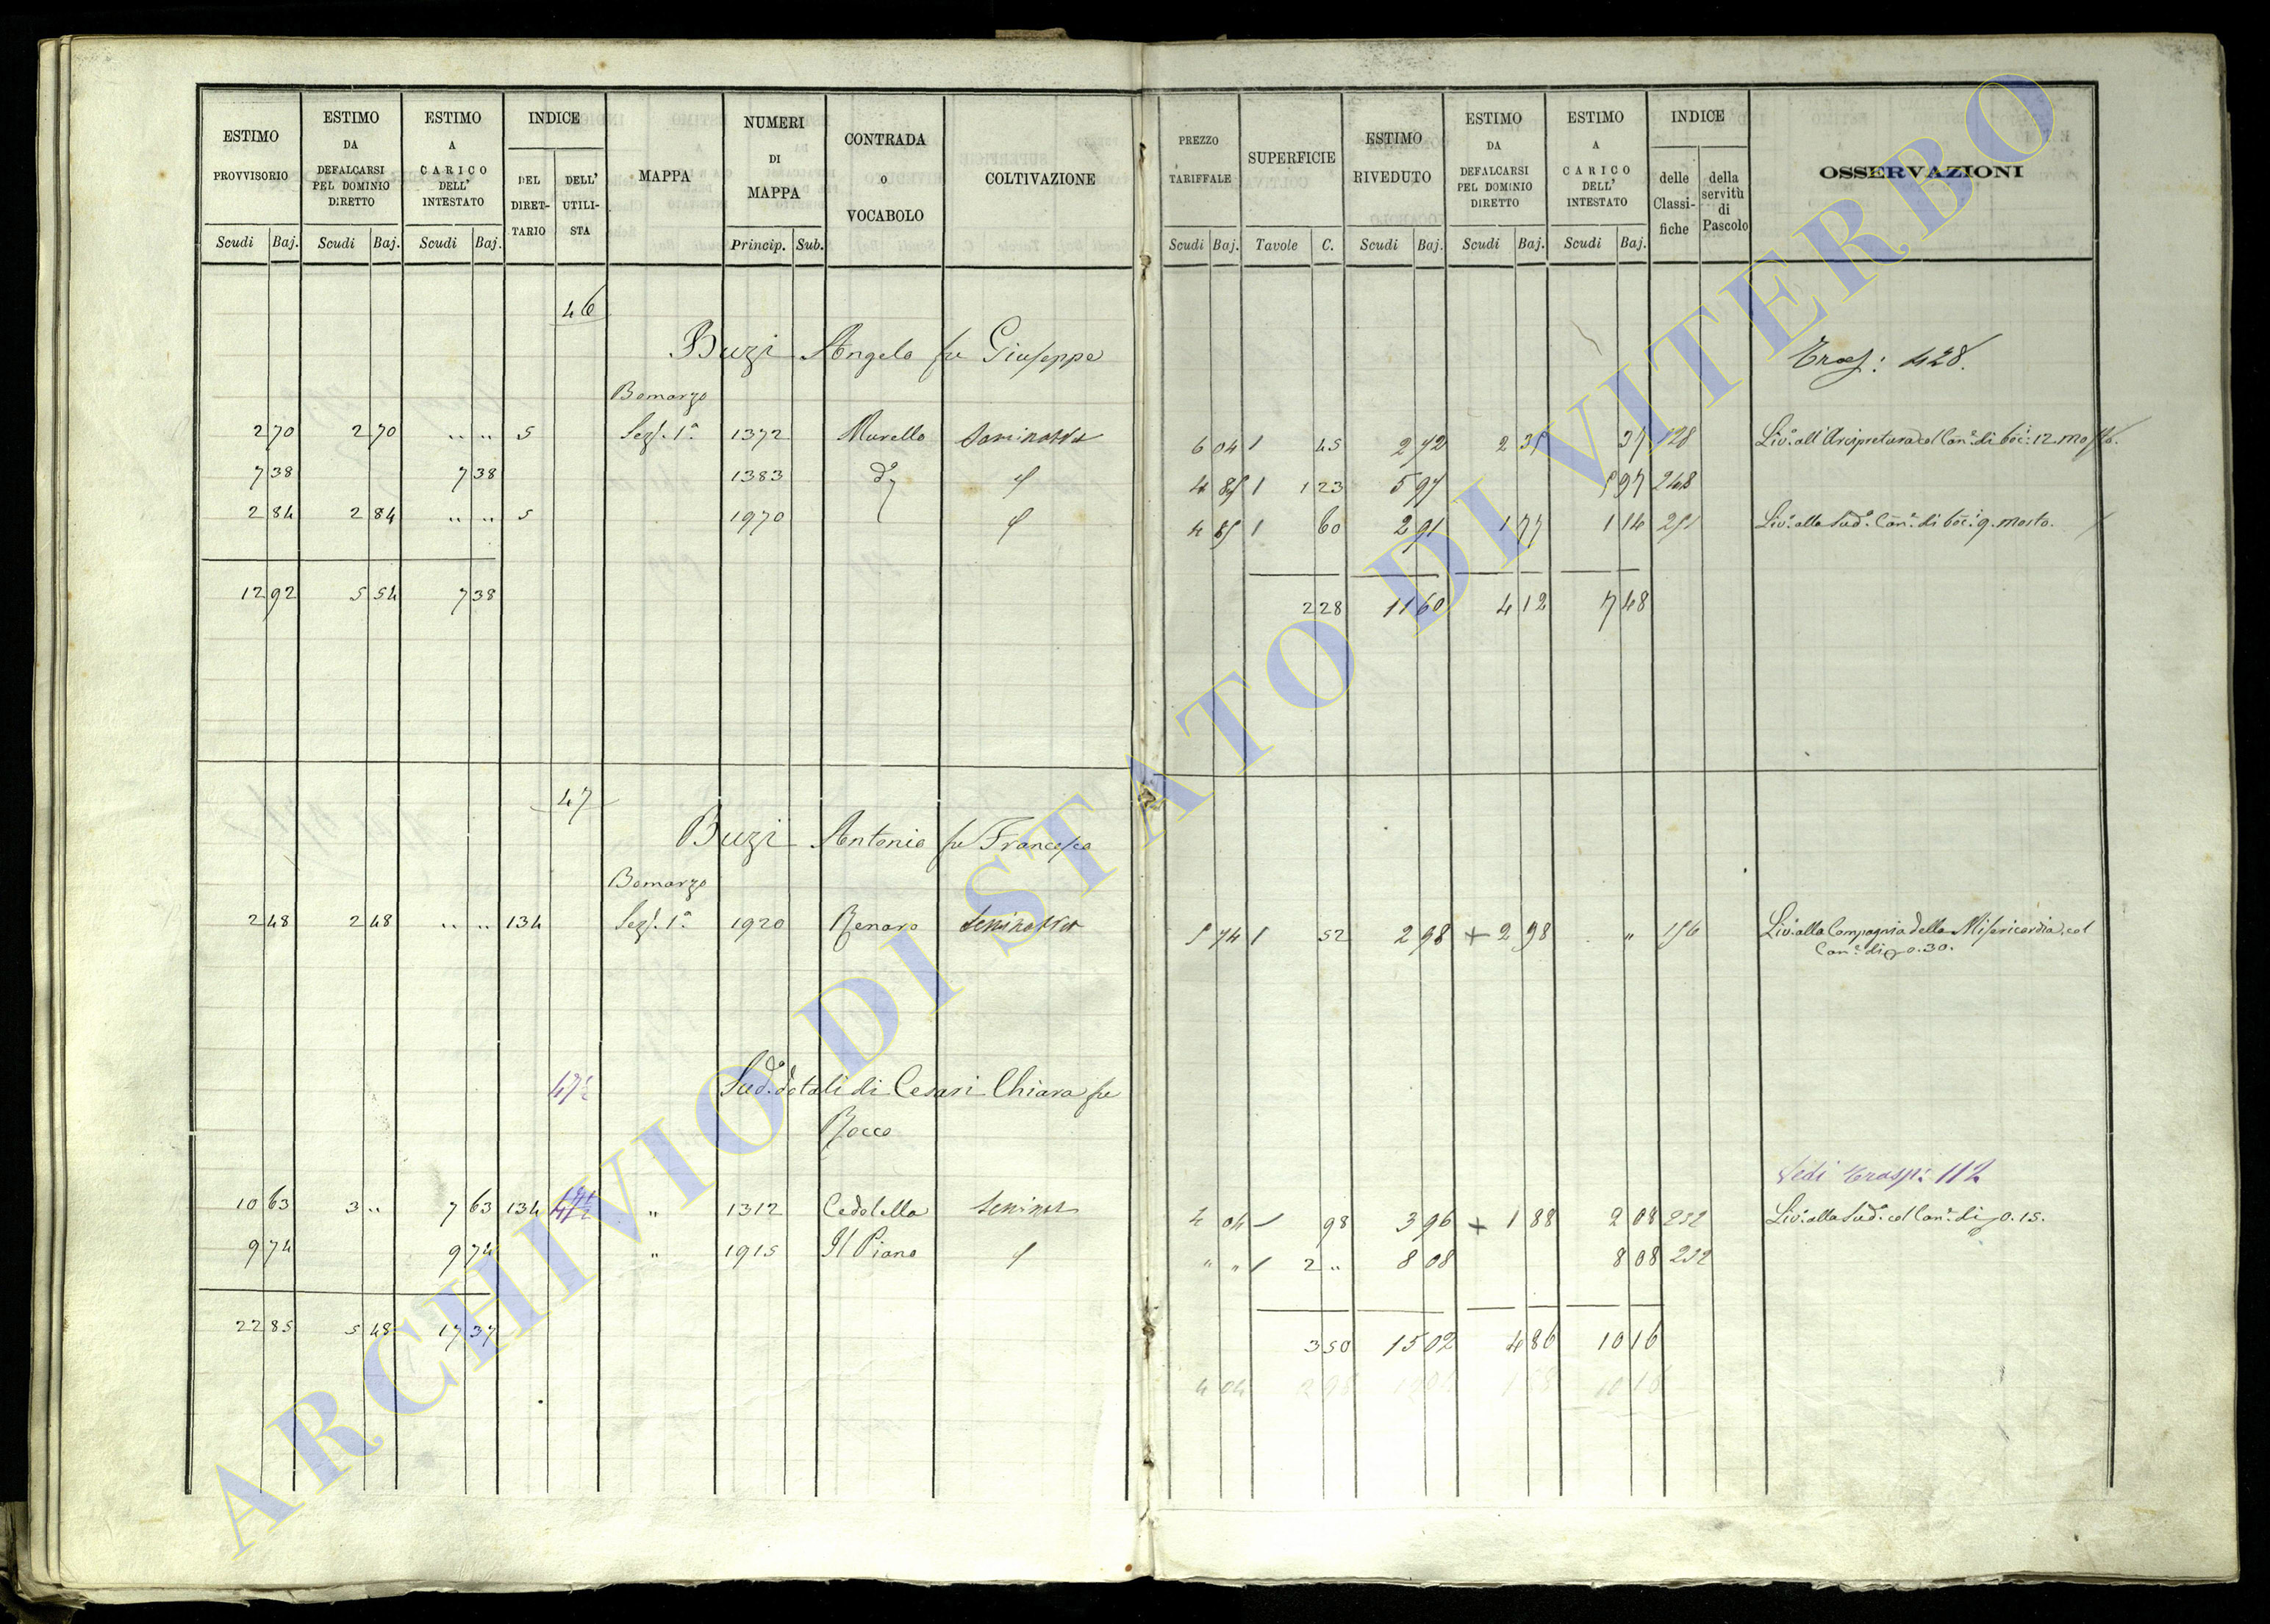 ESTIMO PROVVISORIO
ESTIMO DA DEFALCARSI PEL DOMINIO DIRETTO
ESTIMO A CARICO DELL' INTESTATO
INDICE
DEL DIRET- TARIO
DELL' UTILI- STA
MAPPA
NUMERI DI MAPPA
CONTRADA O VOCABOLO
COLTIVAZIONE
PREZZO TARIFFALE
SUPERFICIE
ESTIMO RIVEDUTO
ESTIMO DA DEFALCARSI PEL DOMINIO DIRETTO
ESTIMO A CARICO DELL' INTESTATO
INDICE
delle Classi- fiche
della servitù di Pascolo
OSSERVAZIONI
Scudi Baj. Scudi Baj. Scudi Baj. Princip. Sub. Scudi Baj. Tavole C. Scudi Baj. Scudi Baj. Scudi Baj.
46
Buzi Angelo fu Giuseppe
Trasp: 428.
Bomarzo
2 70 2 70 " " 5 Sez. 1ª 1372 Murello 6 04 45 2 72 2 35 37 128 Liv. all'Arcipretura col Can. di boc: 12. mosto.
7 38 7 38 1383 d° 4 85 1 23 5 97 5 97 248
2 84 2 84 " " 5 1970 4 85 60 2 91 1 77 1 14 251 Liv. alla Sud. Can. di boc: 9. mosto.
12 92 5 54 7 38 2 28 11 60 4 12 7 48
47
Buzi Antonio fu Francesco
Bomarzo
2 48 2 48 " " 134 Sez. 1ª 1920 Renaro 5 74 52 2 98 + 2 98 " 156 Liv. alla Compagnia della Misericordia col
Can. di 0.30.
47½ Sud.° dotali di Cesari Chiara fu
Rocco
Vedi trasp: 112
10 63 3 " 7 63 134 47½ " 1312 Cedolella semin 4 04 98 3 96 + 1 88 2 08 252 Liv. alla Sud. col Can. di 0.15.
9 74 9 74 " 1915 Il Piano " " 2 " 8 08 8 08 252
22 85 5 48 17 37 3 50 15 02 4 86 10 16
4 04 2 98
ARCHIVIO DI STATO DI VITERBO